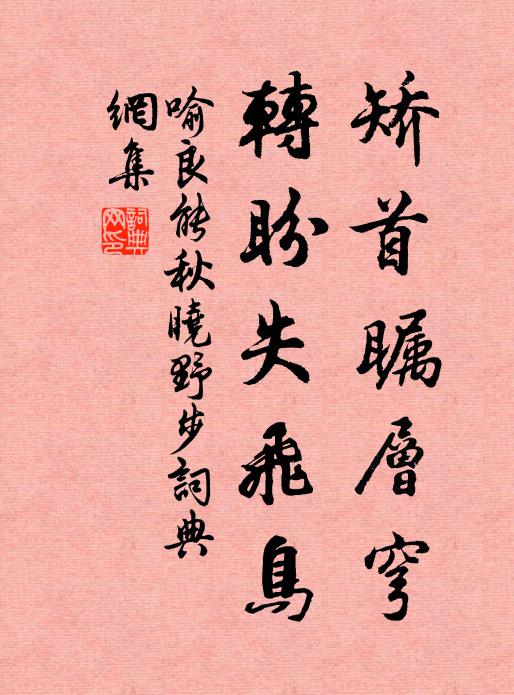 矫首瞩層穹
轉盼失飛鳥
喻良能秋曉野步詞典
網集
詞典
网印